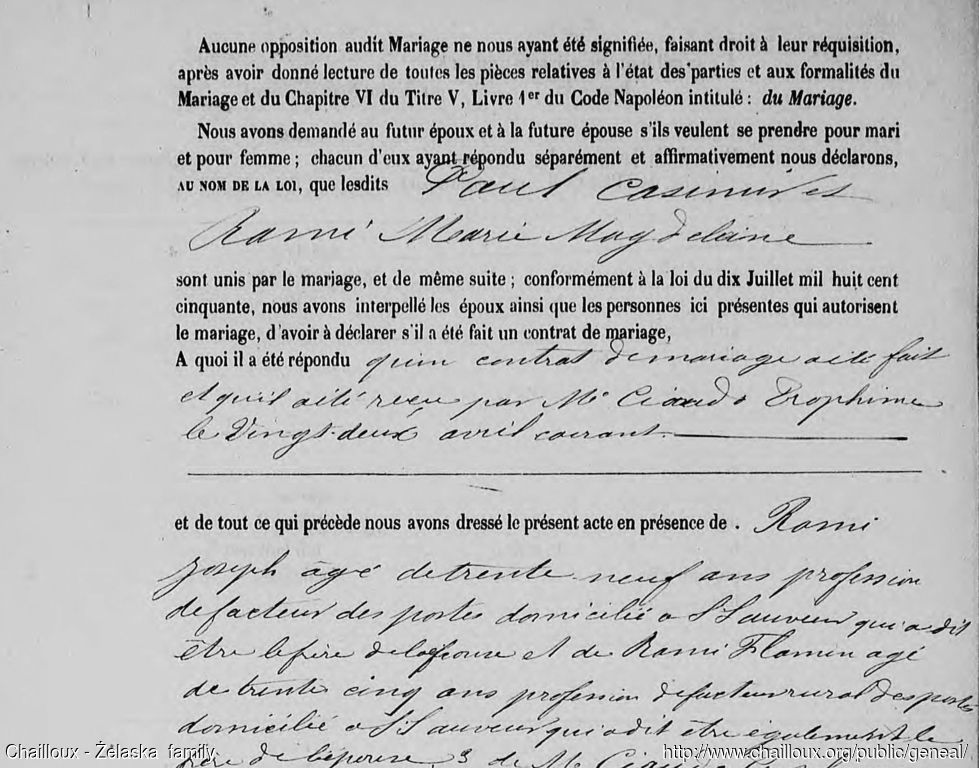 Aucune opposition audit Mariage ne nous ayant été signifiée, faisant droit à leur réquisition,
après avoir donné lecture de toutes les pièces relatives à l'état des parties et aux formalités du
Mariage et du Chapitre VI du Titre V, Livre 1er du Code Napoléon intitulé : du Mariage.
Nous avons demandé au futur époux et à la future épouse s'ils veulent se prendre pour mari
et pour femme ; chacun d'eux ayant répondu séparément et affirmativement nous déclarons,
AU NOM DE LA LOI, que lesdits Paul Casimir et
Rami Marie Magdelaine
sont unis par le mariage, et de même suite ; conformément à la loi du dix Juillet mil huit cent
cinquante, nous avons interpellé les époux ainsi que les personnes ici présentes qui autorisent
le mariage, d'avoir à déclarer s'il a été fait un contrat de mariage,
A quoi il a été répondu qu'un contrat de mariage a été fait
et qu'il a été reçu par Me Ciaudo Trophime
le Vingt-deux avril courant.
et de tout ce qui précède nous avons dressé le présent acte en présence de . Rami
Joseph âgé de trente neuf ans profession
de facteur des postes domicilié a St Sauveur qui a dit
être le frère de la épouse et de Rami Flamin agé
de trente cinq ans profession de facteur rural des postes
domicilié a St Sauveur qui a dit être également le
frère de l'épouse 3 de Me Ciaudo
Chailloux - Żelaska family
http://www.chailloux.org/public/geneal/